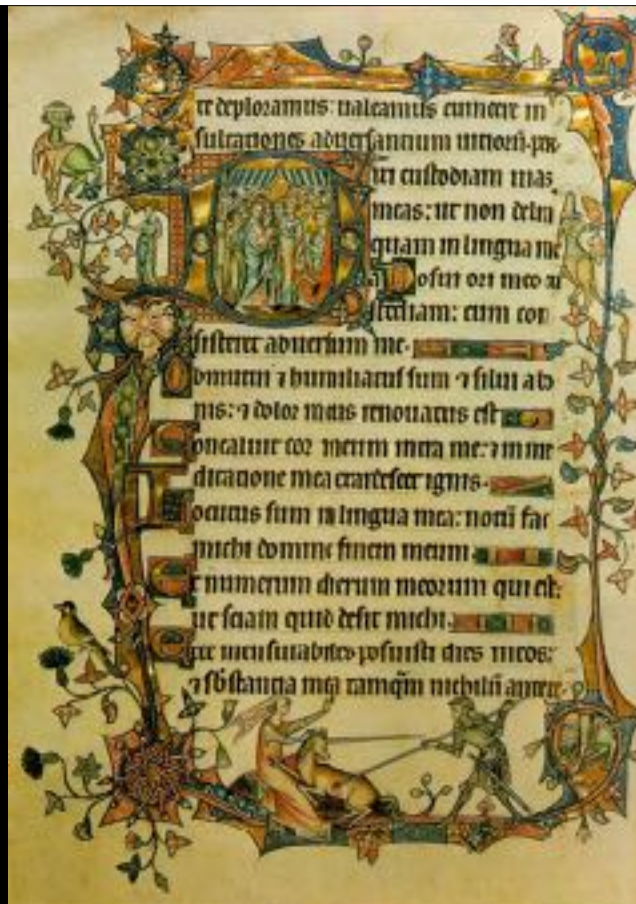 te deploramus: ualeamus euincere in
sultationes aduersantium uitiorū. per
ixi custodiam uias
meas: ut non delin
quam in lingua me
a Posui ori meo cu
stodiam: cum con
sisteret aduersum me.
Obmutui ⁊ humiliatus sum ⁊ silui a bo
nis: ⁊ dolor meus renouatus est
Concaluit cor meum intra me: ⁊ in me
ditatione mea exardescet ignis.
Locutus sum in lingua mea: notū fac
michi domine finem meum.
Et numerum dierum meorum qui est:
ut sciam quid desit michi.
Ecce mensurabiles posuisti dies meos:
⁊ sb̄stantia mea tamqm̄ nichilū ante te.